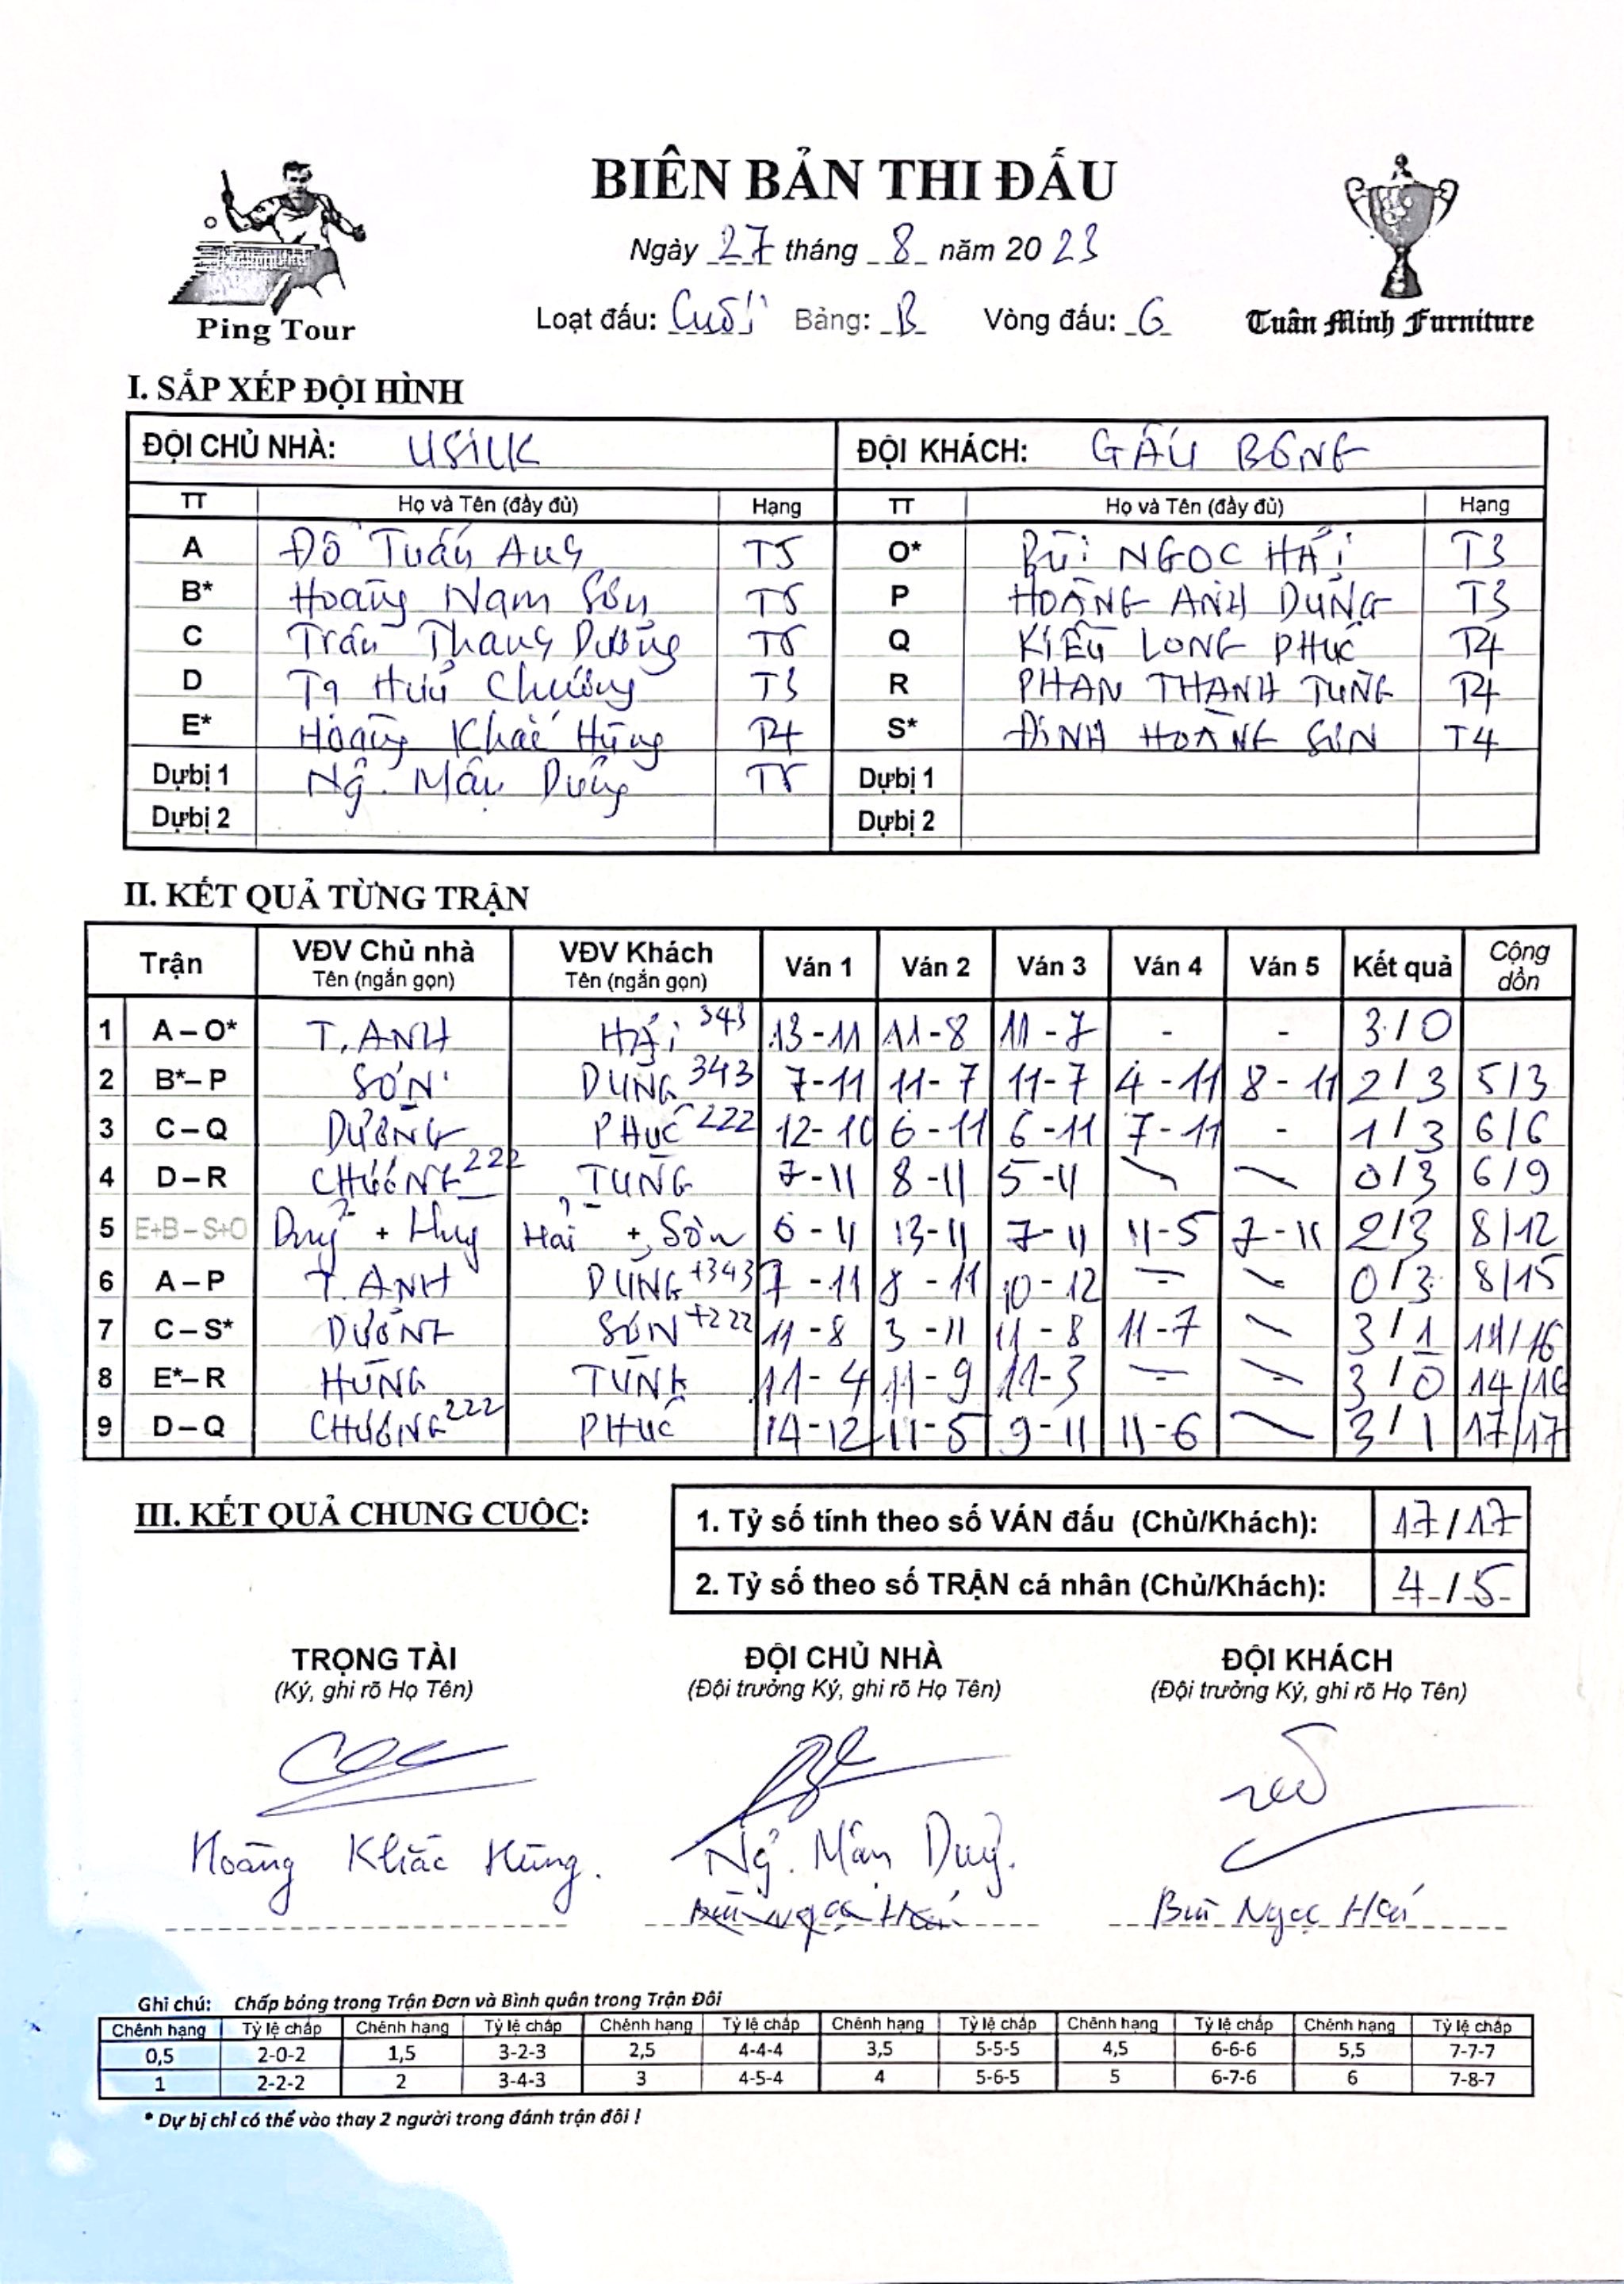 BIÊN BẢN THI ĐẤU
Ngày 27 tháng 8 năm 20 23
Ping Tour
Loạt đấu: Cuối Bảng: B Vòng đấu: G
Tuấn Minh Furniture
I. SẮP XẾP ĐỘI HÌNH
ĐỘI CHỦ NHÀ: USILK ĐỘI KHÁCH: GẤU BÔNG
TT Họ và Tên (đầy đủ) Hạng TT Họ và Tên (đầy đủ) Hạng
A Đỗ Tuấn Anh T5 O* BÙI NGỌC HẢI T3
B* Hoàng Nam Sơn T5 P HOÀNG ANH DŨNG T3
C Trần Thang Dương T5 Q KIỀU LONG PHÚC T4
D Tạ Hữu Chương T3 R PHAN THANH TÙNG T4
E* Hoàng Khắc Hùng T4 S* ĐINH HOÀNG SƠN T4
Dự bị 1 Ng. Mậu T5 Dự bị 1
Dự bị 2 Dự bị 2
II. KẾT QUẢ TỪNG TRẬN
Trận VĐV Chủ nhà Tên (ngắn gọn) VĐV Khách Tên (ngắn gọn) Ván 1 Ván 2 Ván 3 Ván 4 Ván 5 Kết quả Cộng dồn
1 A – O* T. ANH HẢI 343 13-11 11-8 11-7 - - 3/0
2 B* – P SƠN DŨNG 343 7-11 11-7 11-7 4-11 8-11 2/3 5/3
3 C – Q DƯƠNG PHÚC 222 12-10 6-11 6-11 7-11 - 1/3 6/6
4 D – R CHƯƠNG 222 TÙNG 7-11 8-11 5-11 - - 0/3 6/9
5 E+B – S+O Duy + Hùng Hải + Sơn 6-11 13-11 7-11 11-5 7-11 2/3 8/12
6 A – P T. ANH DŨNG +343 7-11 8-11 10-12 - - 0/3 8/15
7 C – S* DƯƠNG SƠN +222 11-8 3-11 11-8 11-7 - 3/1 11/16
8 E* – R HÙNG TÙNG 11-4 11-9 11-3 - - 3/0 14/16
9 D – Q CHƯƠNG 222 PHÚC 14-12 11-5 9-11 11-6 - 3/1 17/17
III. KẾT QUẢ CHUNG CUỘC:
1. Tỷ số tính theo số VÁN đấu (Chủ/Khách): 17/17
2. Tỷ số theo số TRẬN cá nhân (Chủ/Khách): 4/5
TRỌNG TÀI ĐỘI CHỦ NHÀ ĐỘI KHÁCH
(Ký, ghi rõ Họ Tên) (Đội trưởng Ký, ghi rõ Họ Tên) (Đội trưởng Ký, ghi rõ Họ Tên)
Hoàng Khắc Hùng. Ng. Mậu Duy.
Bùi Ngọc Hải Bùi Ngọc Hải
Ghi chú: Chấp bóng trong Trận Đơn và Bình quân trong Trận Đôi
Chênh hạng Tỷ lệ chấp Chênh hạng Tỷ lệ chấp Chênh hạng Tỷ lệ chấp Chênh hạng Tỷ lệ chấp Chênh hạng Tỷ lệ chấp Chênh hạng Tỷ lệ chấp
0,5 2-0-2 1,5 3-2-3 2,5 4-4-4 3,5 5-5-5 4,5 6-6-6 5,5 7-7-7
1 2-2-2 2 3-4-3 3 4-5-4 4 5-6-5 5 6-7-6 6 7-8-7
* Dự bị chỉ có thể vào thay 2 người trong đánh trận đôi !